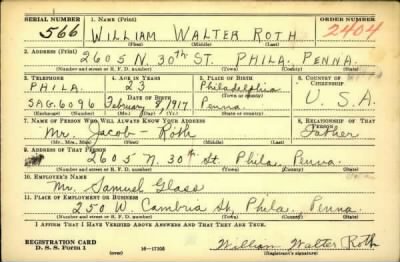 SERIAL NUMBER 1. NAME (Print) ORDER NUMBER
566 WILLIAM WALTER ROTH 2404
(First) (Middle) (Last)
2. ADDRESS (Print)
2605 N. 30th ST. PHILA. PENNA.
(Number and street or R. F. D. number) (Town) (County) (State)
3. TELEPHONE 4. AGE IN YEARS 5. PLACE OF BIRTH 6. COUNTRY OF CITIZENSHIP
PHILA. 23 Philadelphia
DATE OF BIRTH (Town or county) U. S. A.
SAG. 6096 February 8, 1917 Penna.
(Exchange) (Number) (Mo.) (Day) (Yr.) (State or country)
7. NAME OF PERSON WHO WILL ALWAYS KNOW YOUR ADDRESS 8. RELATIONSHIP OF THAT PERSON
Mr. Jacob - Roth Father
(Mr., Mrs., Miss) (First) (Middle) (Last)
9. ADDRESS OF THAT PERSON
2605 N. 30th St. Phila, Penna.
(Number and street or R. F. D. number) (Town) (County) (State)
10. EMPLOYER'S NAME
Mr. Samuel Glass
11. PLACE OF EMPLOYMENT OR BUSINESS
250 W. Cambria St, Phila, Penna.
(Number and street or R. F. D. number) (Town) (County) (State)
I AFFIRM THAT I HAVE VERIFIED ABOVE ANSWERS AND THAT THEY ARE TRUE.
REGISTRATION CARD
D. S. S. Form 1 (over) 16-17105 William Walter Roth
(Registrant's signature)